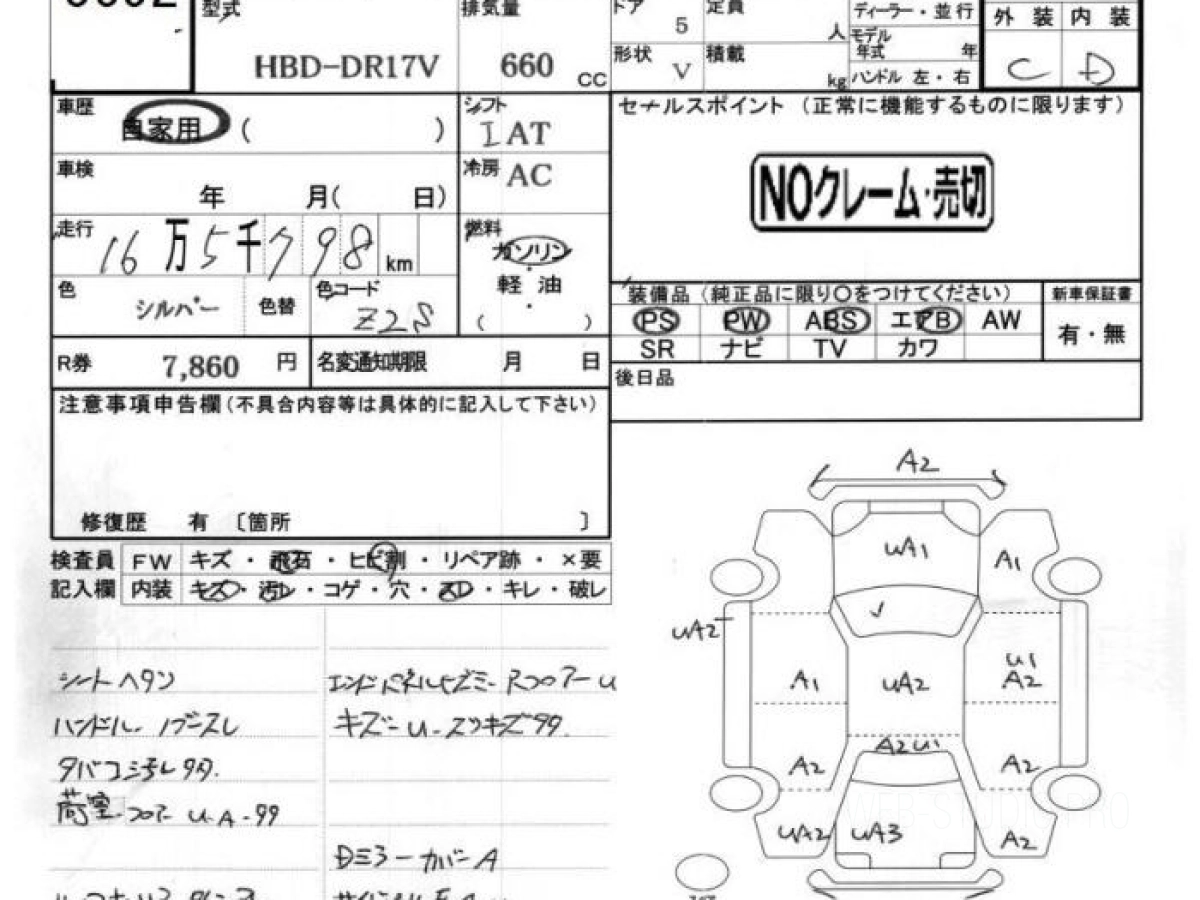 型式 HBD-DR17V
排気量 660 CC
ドア 5
定員 人
形状 V
積載 kg
ディーラー・並行
モデル年式 年
ハンドル 左・右
外装 内装
C D
車歴 自家用 ( )
シフト IAT
車検 年 月( 日)
冷房 AC
走行 16万5千798 km
燃料 ガソリン
軽油
・
( )
色 シルバー 色替 色コード Z2S
R券 7,860 円 名変通知期限 月 日
セールスポイント (正常に機能するものに限ります)
NOクレーム・売切
装備品 (純正品に限り○をつけてください) 新車保証書
PS PW ABS エアB AW 有・無
SR ナビ TV カワ
後日品
注意事項申告欄(不具合内容等は具体的に記入して下さい)
修復歴 有 〔箇所 〕
検査員 FW キズ・飛石・ヒビ割・リペア跡・×要
記入欄 内装 キズ・汚レ・コゲ・穴・スレ・キレ・破レ
シートヘタリ
ハンドル
キズ
荷室 フロアー U.A.99
Dミラーカバー A
A2
UA1 A1
UA2
A1 UA2 U1
A2
A2U1
A2 A2
UA2 UA3 A2
WEB-STUDIO PRO